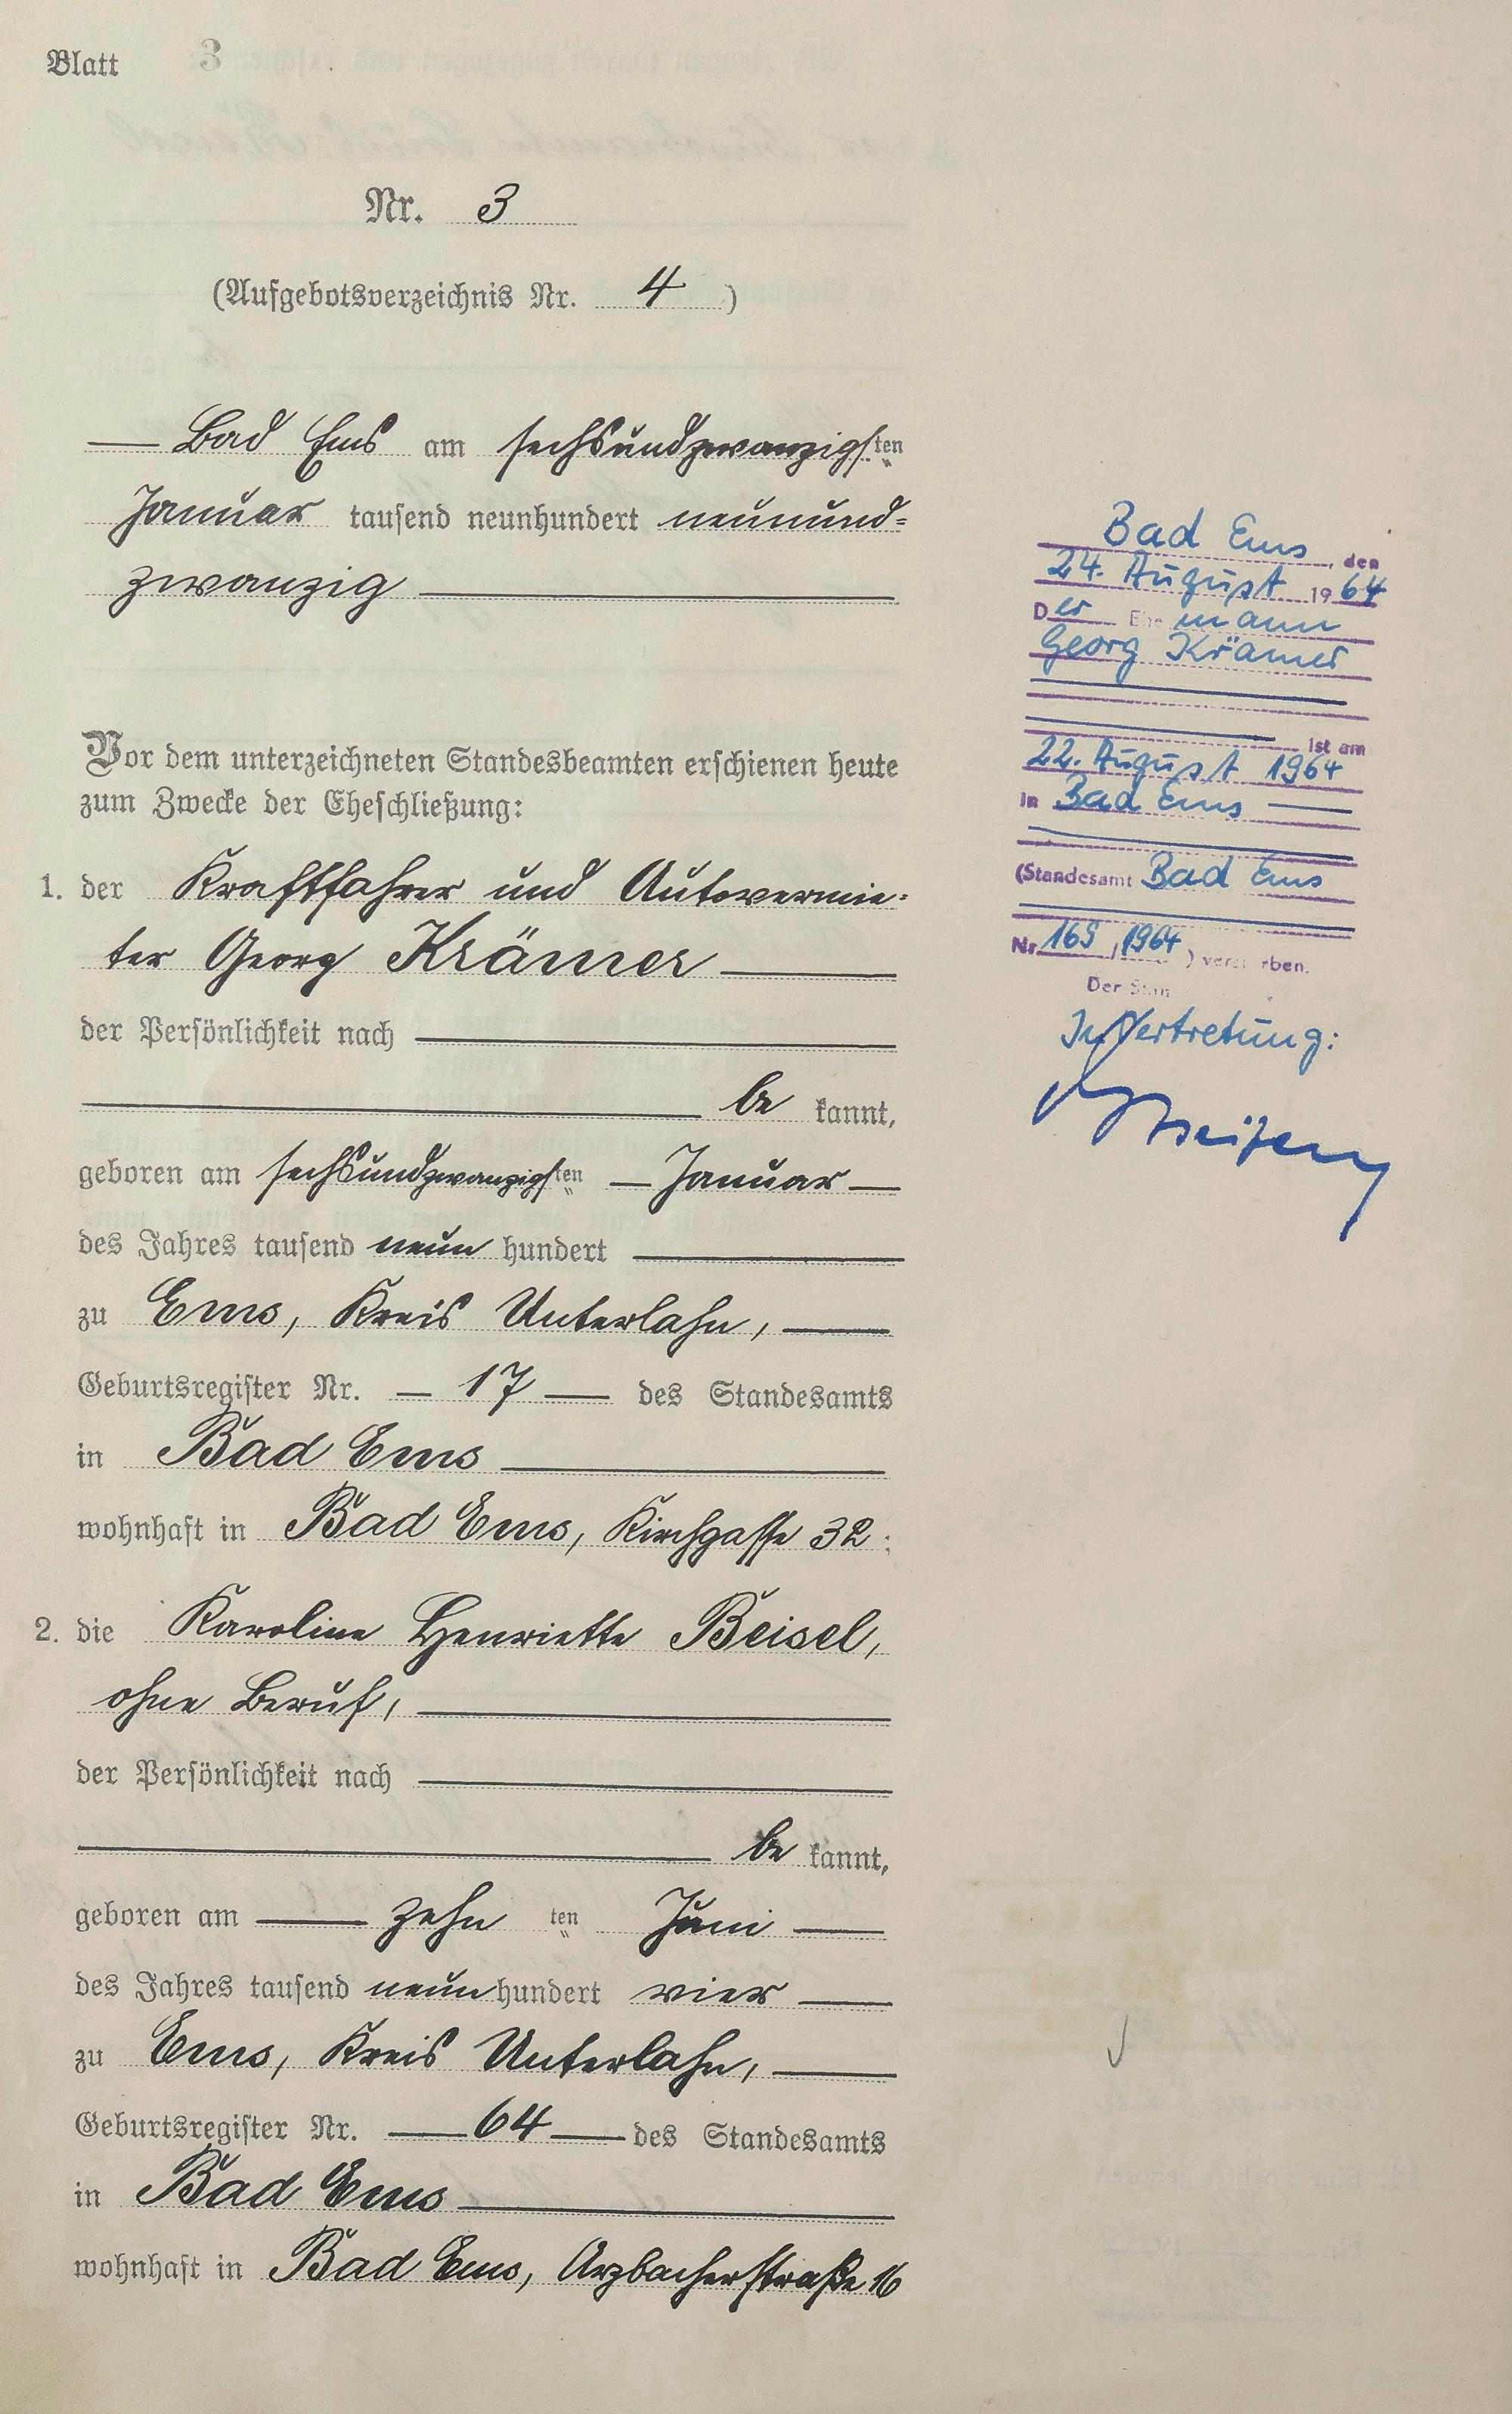 Blatt 3
Nr. 3
(Aufgebotsverzeichnis Nr. 4)
Bad Ems am sechsundzwanzigsten
Januar tausend neunhundert neunund=
zwanzig
Vor dem unterzeichneten Standesbeamten erschienen heute
zum Zwecke der Eheschließung:
1. der Kraftfahrer und Autovermie=
ter Georg Krämer
der Persönlichkeit nach
be kannt,
geboren am sechsundzwanzigsten Januar
des Jahres tausend neun hundert
zu Ems, Kreis Unterlahn,
Geburtsregister Nr. 17 des Standesamts
in Bad Ems
wohnhaft in Bad Ems, Kirchgasse 32.
2. die Karoline Henriette Beisel,
ohne Beruf,
der Persönlichkeit nach
be kannt,
geboren am zehn ten Juni
des Jahres tausend neun hundert vier
zu Ems, Kreis Unterlahn,
Geburtsregister Nr. 64 des Standesamts
in Bad Ems
wohnhaft in Bad Ems, Arzbacherstraße 16
Bad Ems, den
24. August 1964
Der Ehemann
Georg Krämer
ist am
22. August 1964
in Bad Ems
(Standesamt Bad Ems
Nr. 169/1964) verstorben.
Der Stan
In Vertretung: